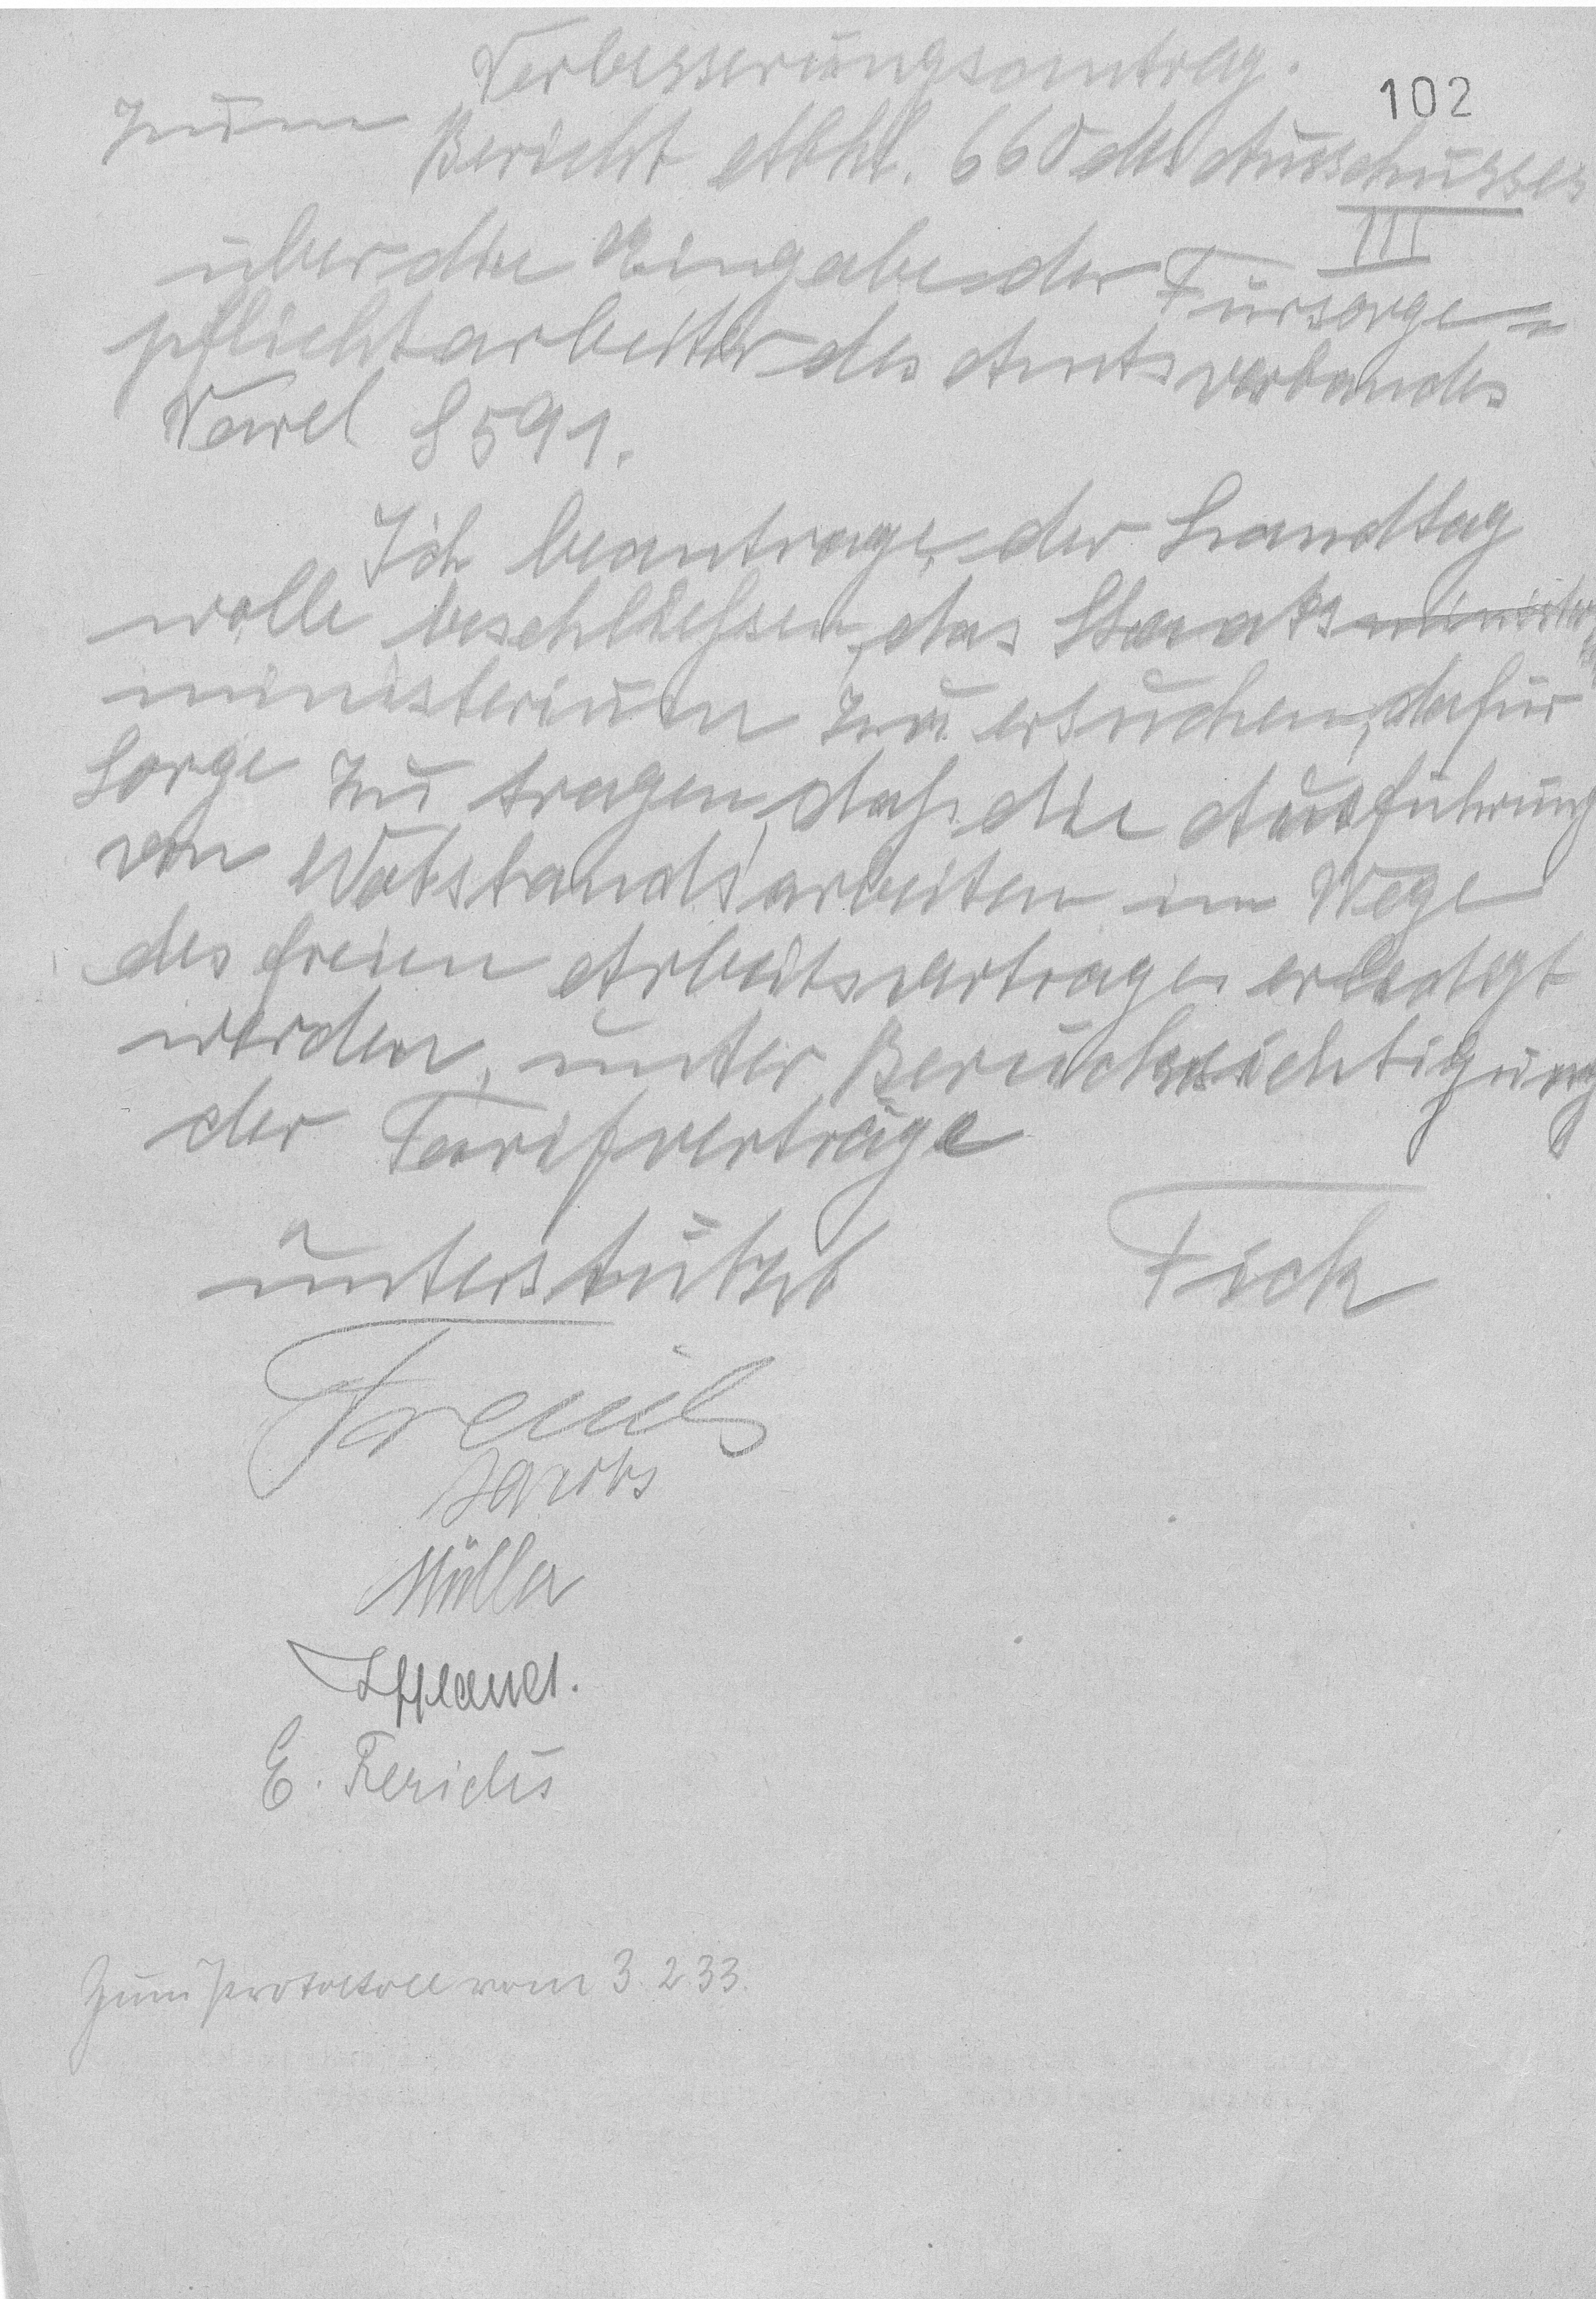 Verbesserungsantrag.
102
zum
Bericht Abtl. 660 des Ausschusses
III
über die Eingabe der Fürsorge=
pflichtarbeiter des Amtsverbandes
Varel S 591.
Ich beantrage, der Landtag
wolle beschließen, das Staatsminister
ministerium zu ersuchen, dafür
Sorge zu tragen, daß die Ausführung
von Notstandsarbeiten im Wege
des freien Arbeitsvertrages erledigt
werden, unter Berücksichtigung
der Tarifverträge
unterstützt
Fick
Jacobs
Müller
E. Frerichs
Zum Protokoll vom 3.2.33.